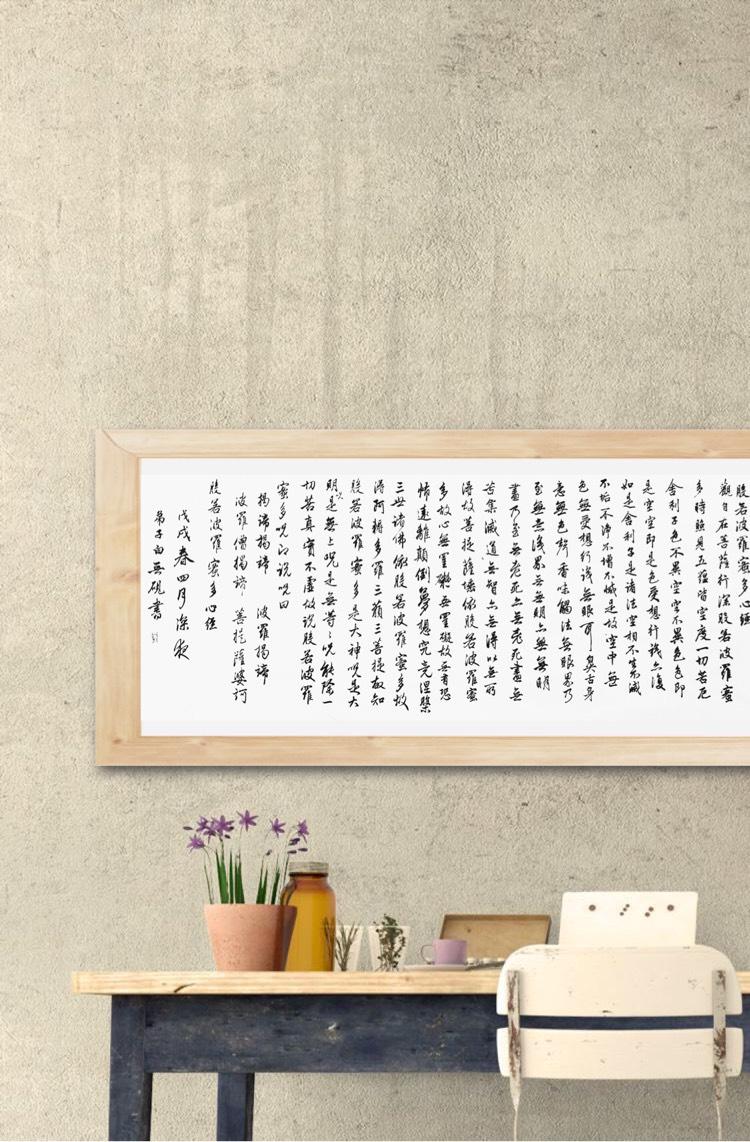 般若波羅蜜多心經
觀自在菩薩行深般若波羅蜜
多時照見五蘊皆空度一切苦厄
舍利子色不異空空不異色色即
是空空即是色受想行識亦復
如是舍利子是諸法空相不生不滅
不垢不淨不增不減是故空中無
色無受想行識無眼耳鼻舌身
意無色聲香味觸法無眼界乃
至無意識界無無明亦無無明
盡乃至無老死亦無老死盡無
苦集滅道無智亦無得以無所
得故菩提薩埵依般若波羅蜜
多故心無罣礙無罣礙故無有恐
怖遠離顛倒夢想究竟涅槃
三世諸佛依般若波羅蜜多故
得阿耨多羅三藐三菩提故知
般若波羅蜜多是大神呪是大
明呪是無上呪是無等等呪能除一
切苦真實不虛故說般若波羅
蜜多呪即說呪曰
揭諦揭諦 波羅揭諦
波羅僧揭諦 菩提薩婆訶
般若波羅蜜多心經
戊戌春四月深夜
弟子白無硯書